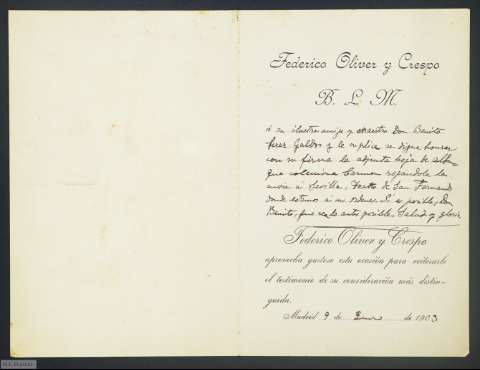 Federico Oliver y Crespo
B. L. M.
á su ilustre amigo y maestro Don Benito
Perez Galdos y le suplica se digne honrar
con su firma la adjunta hoja de album
que colecciona Carmen rogándole la
envie á Sevilla, Teatro de San Fernando
donde estamos á su orden. Si es posible, Don
Benito, que sea lo antes posible. Salud y gloria
Federico Oliver y Crespo
aprovecha gustoso esta ocasión para reiterarle
el testimonio de su consideración más distin-
guida.
Madrid 9 de Enero de 1903